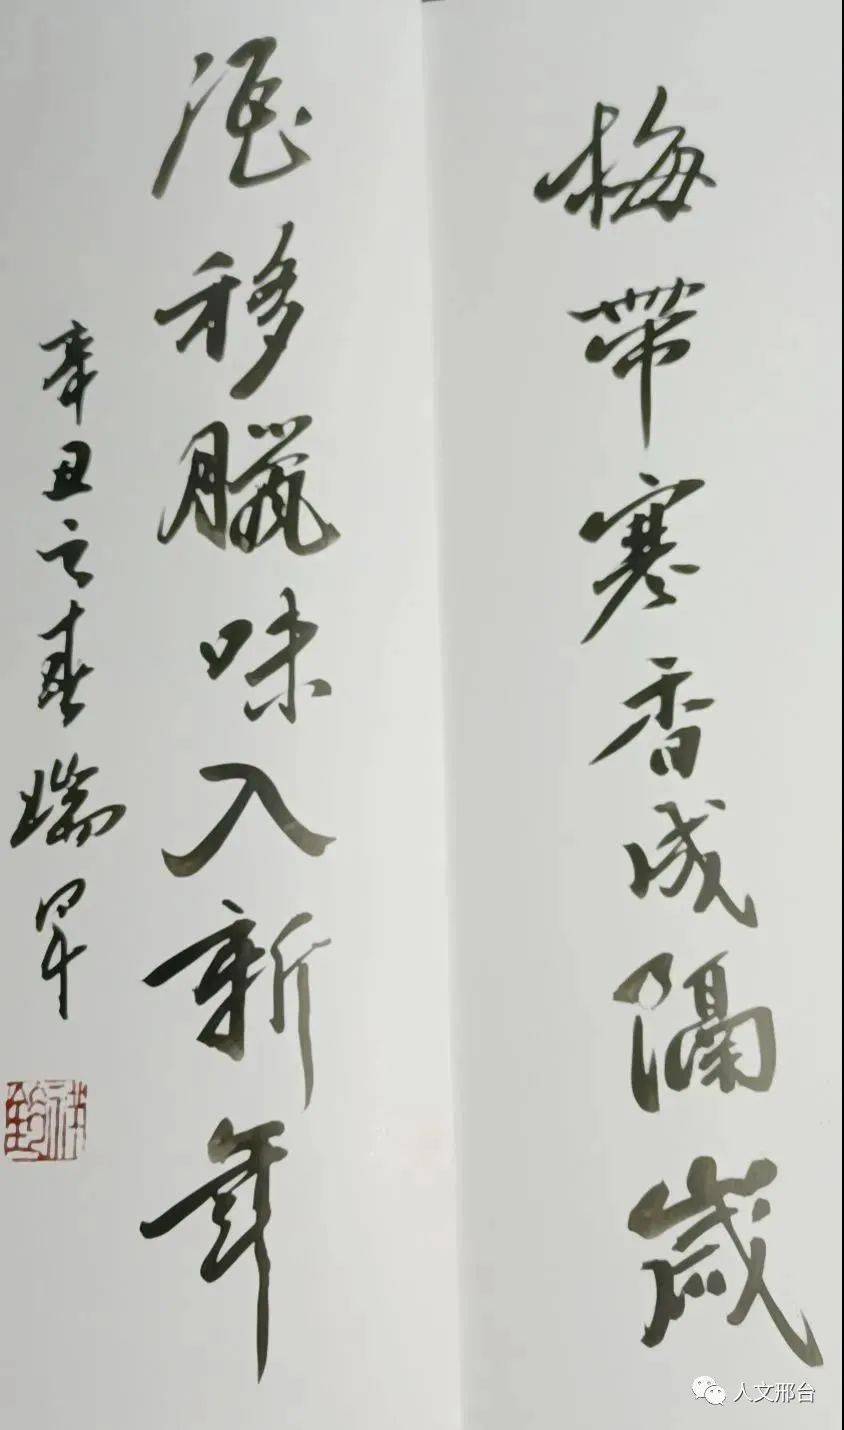 梅帶寒香成隔歲
酒移臘味入新年
辛丑之春瑞軍
人文邢台